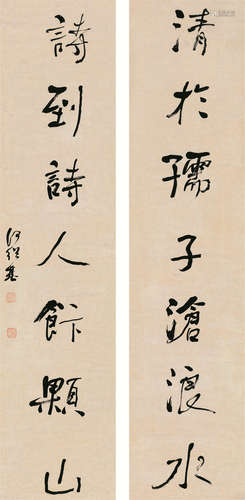 清於孺子滄浪水
詩到詩人飰顆山
何紹基